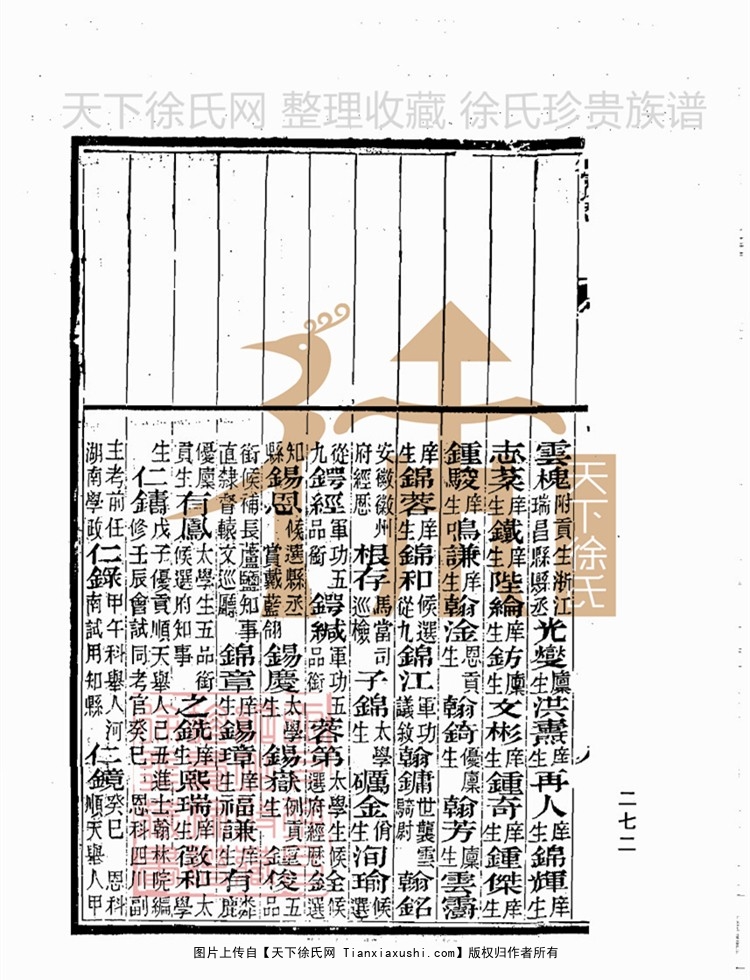 天下徐氏网 整理收藏 徐氏珍贵族谱
雲槐附貢生浙江瑞昌縣縣丞光燮廩生洪熹庠生再人庠生錦輝庠生
志棻庠生鐵庠生陛綸庠生鈁廩生文彬庠生鍾奇庠生鍾傑庠生
鍾駿庠生鳴謙庠生翰淦恩貢生翰錡優廩生翰芳廩生雲濤
庠生錦蓉庠生錦和候選從九錦江軍功議敘翰鏞世襲雲騎尉翰銘
安徽徽州府經歷根存馬當司巡檢子錦太學生礪金佾生洵瑜候選
從九鍔經軍功五品銜鍔緘軍功五品銜蓉第太學生候選府經歷金
知縣錫恩候選縣丞賞戴藍翎錫慶太學生錫嶽例貢生鍾俊五品
銜候補長蘆鹽知事直隸督轅文巡廳錦章庠生錫璋庠生福謙庠生有
優廩貢生有鳳太學生五品銜候選府知事之銑庠生熙瑞庠生徵和太學
生仁壽戊子優貢順天舉人己丑進士翰林院編
仁鑄修壬辰會試同考官癸巳恩科四川副
主考前任湖南學政仁錄甲午科舉人河南試用知縣仁鏡癸巳恩科順天舉人甲
二七二
天下徐氏
图片上传自【天下徐氏网 Tianxiaxushi.com】版权归作者所有